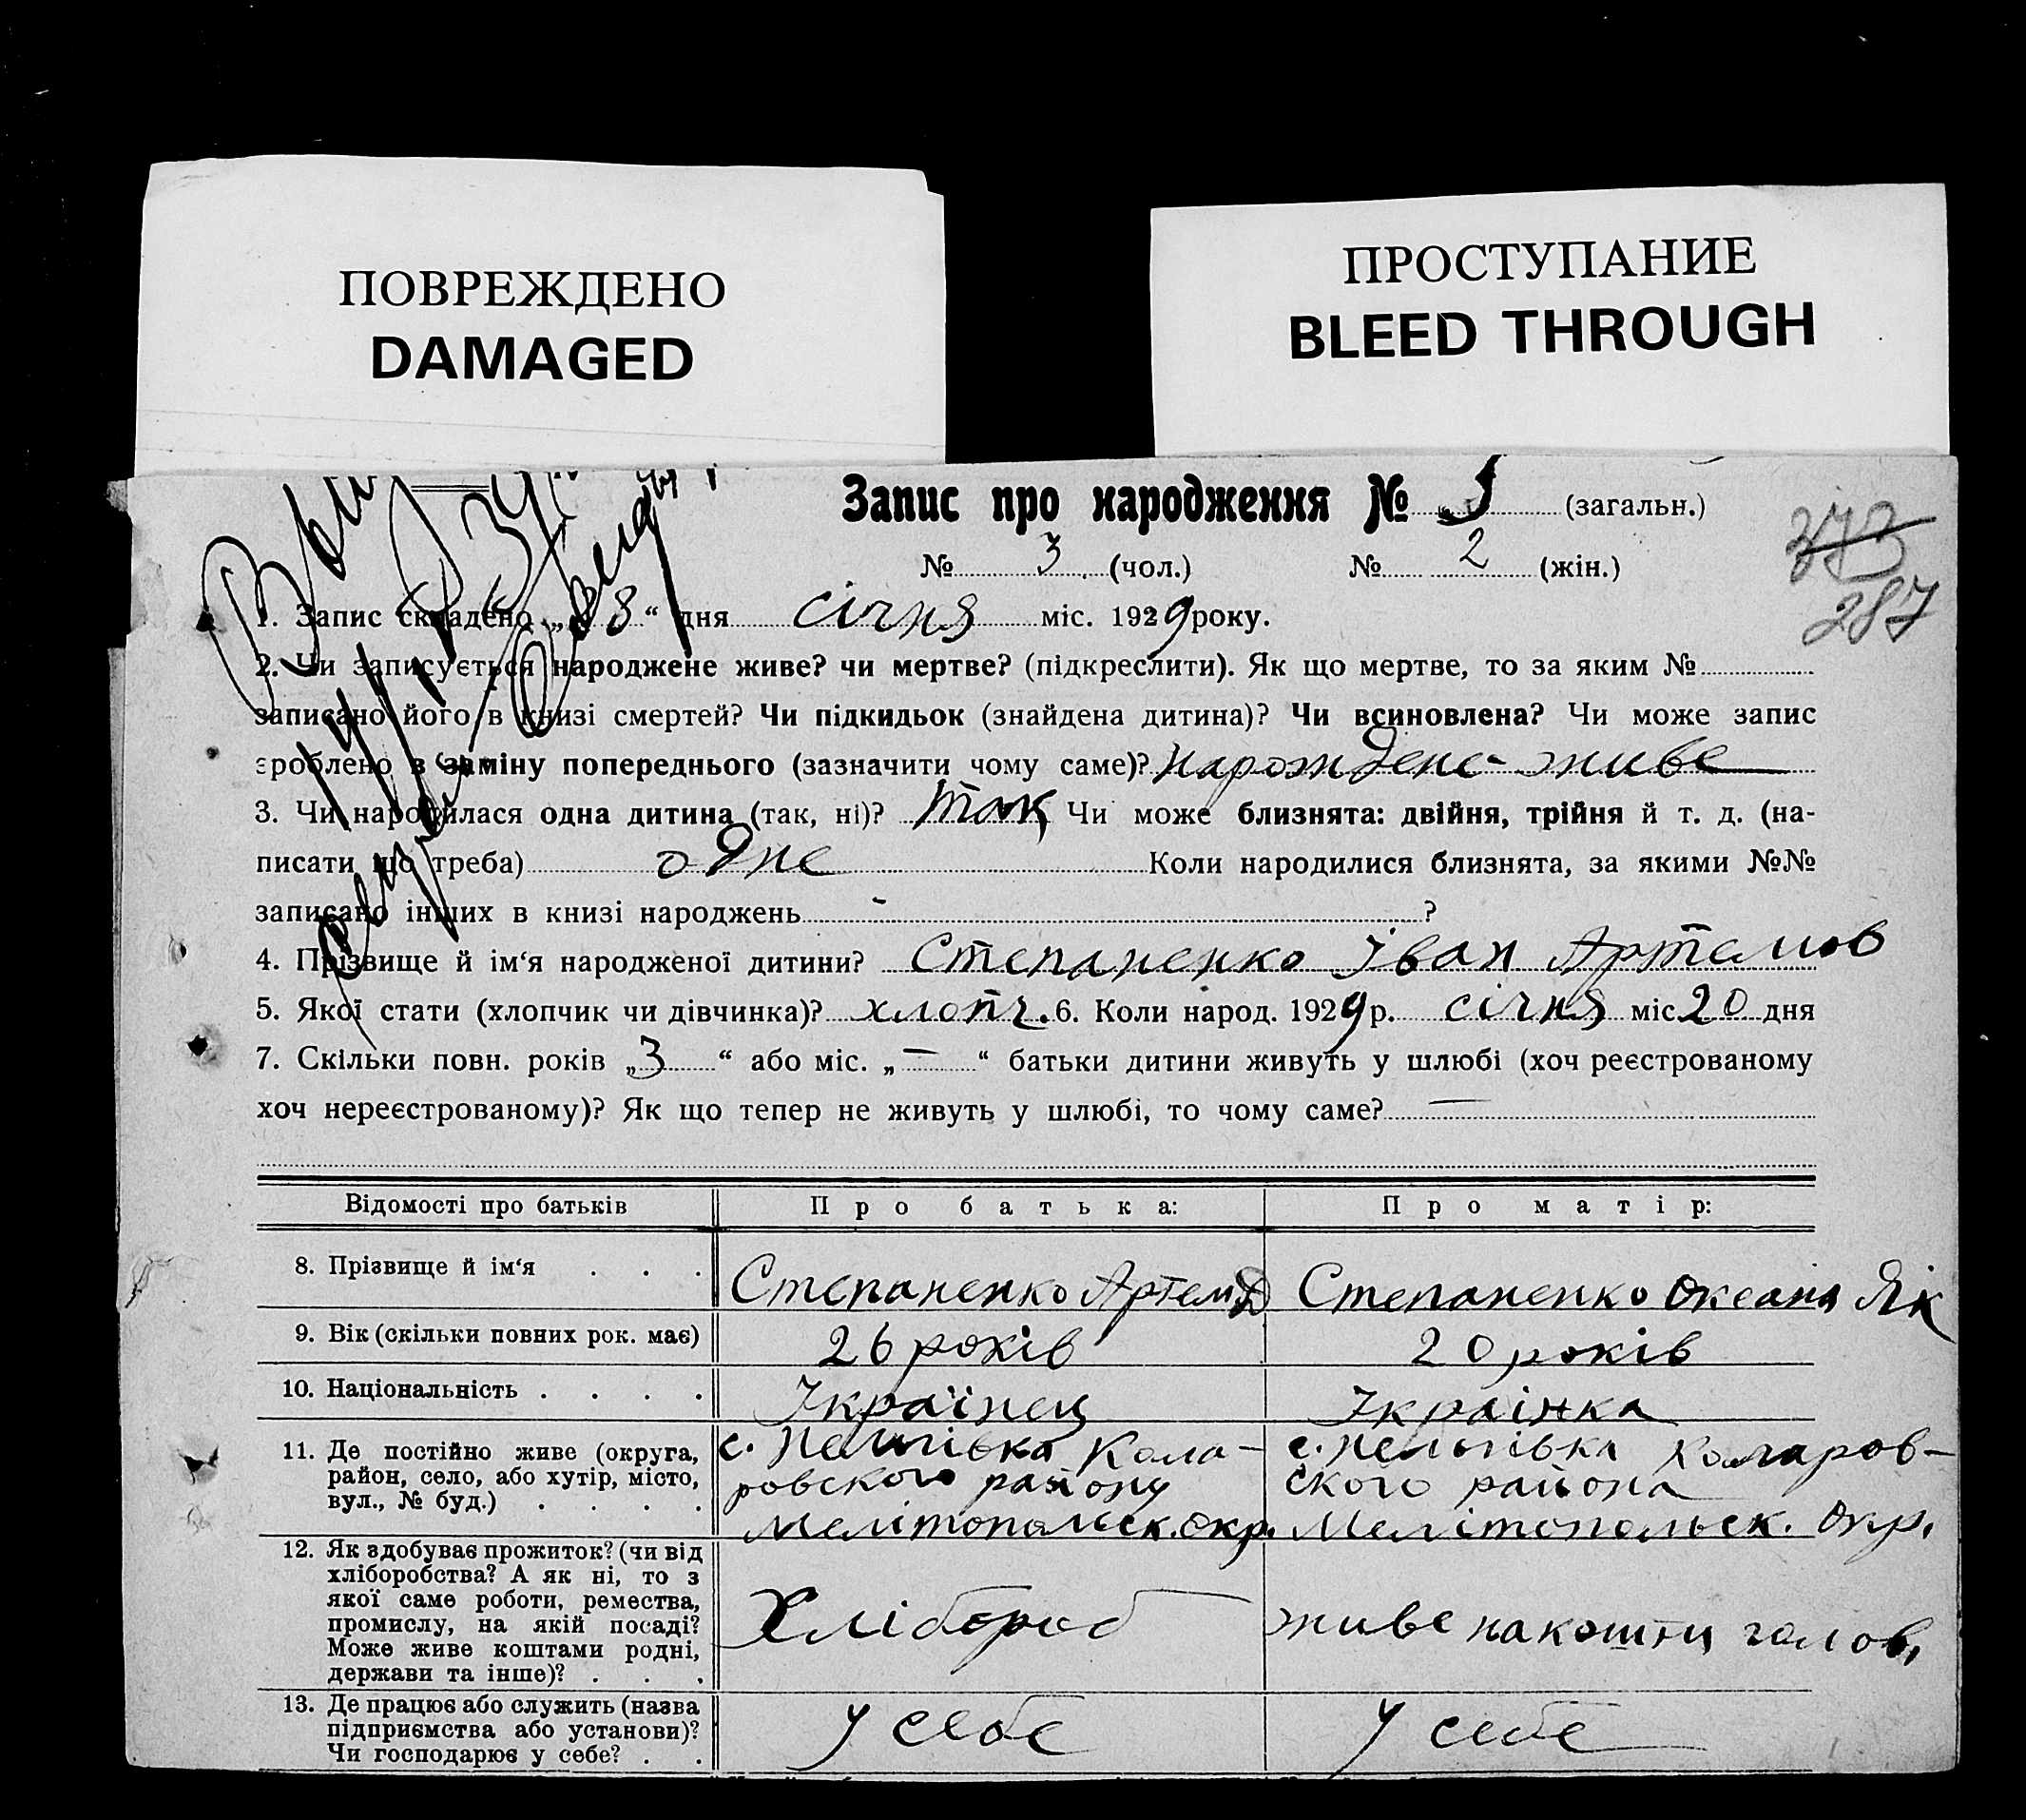 ПОВРЕЖДЕНО
DAMAGED
ПРОСТУПАНИЕ
BLEED THROUGH
Запис про народження № 5 (загальн.)
373
№ 3 (чол.) № 2 (жін.)
287
1. Запис складено „28“ дня січня міс. 1929 року.
2. Чи записується народжене живе? чи мертве? (підкреслити). Як що мертве, то за яким №
записано його в книзі смертей? Чи підкидьок (знайдена дитина)? Чи всиновлена? Чи може запис
зроблено в заміну попереднього (зазначити чому саме)? нарождене живе
3. Чи народилася одна дитина (так, ні)? так Чи може близнята: двійня, трійня й т. д. (на-
писати що треба) одне Коли народилися близнята, за якими №№
записано інших в книзі народжень - ?
4. Прізвище й ім‘я народженої дитини? Степаненко Іван Артемов
5. Якої стати (хлопчик чи дівчинка)? хлопч. 6. Коли народ. 1929 р. січня міс 20 дня
7. Скільки повн. років „3“ або міс. „—“ батьки дитини живуть у шлюбі (хоч реєстрованому
хоч нереєстрованому)? Як що тепер не живуть у шлюбі, то чому саме? —
Відомості про батьків Про батька: Про матір:
8. Прізвище й ім‘я . . . Степаненко Артем Д Степаненко Оксана Як
9. Вік (скільки повних рок. має) 26 років 20 років
10. Національність . . . . Українец Українка
11. Де постійно живе (округа, с. Нельгівка Кола- с. Нельгівка Коларов-
район, село, або хутір, місто, ровского району ского района
вул., № буд.) . . . . Мелітопольск. окр. Мелітопольск. Окр.
12. Як здобуває прожиток? (чи від
хліборобства? А як ні, то з
якої саме роботи, ремества, Хлібороб живе на кошти голов.
промислу, на якій посаді?
Може живе коштами родні,
держави та інше)? . . .
13. Де працює або служить (назва у себе у себе
підприємства або установи)?
Чи господарює у себе? . .